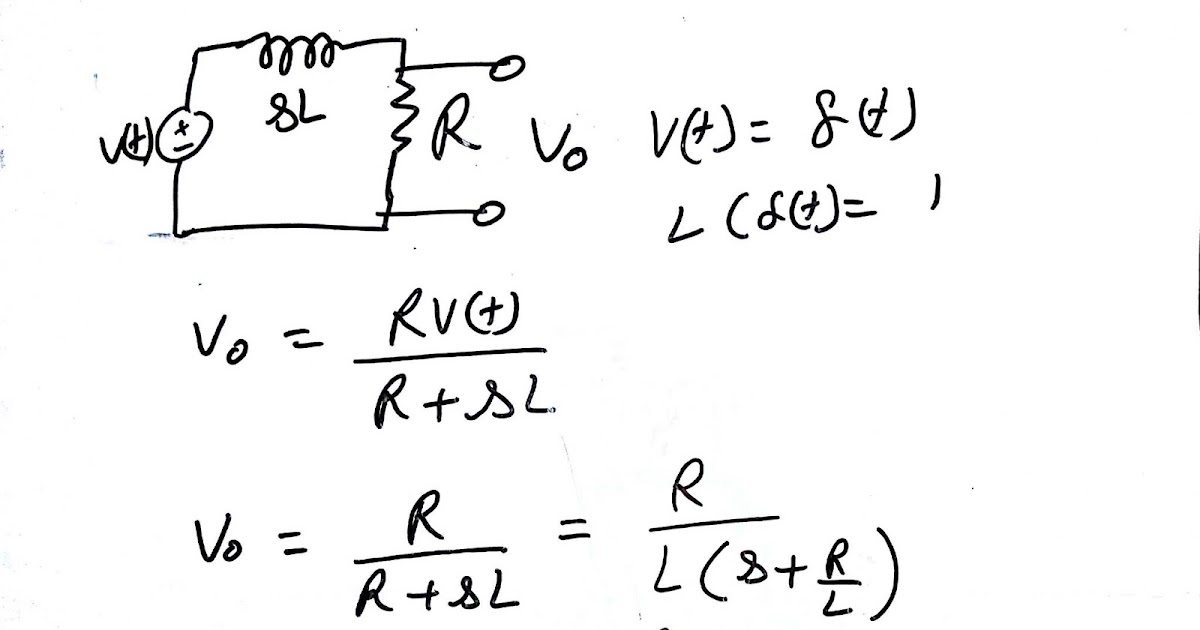 V(t)
+
-
sL
R
V₀
V(t) = δ(t)
L (δ(t) = 1
V₀ = RV(t) / R + sL
V₀ = R / R + sL = R / L (s + R/L)